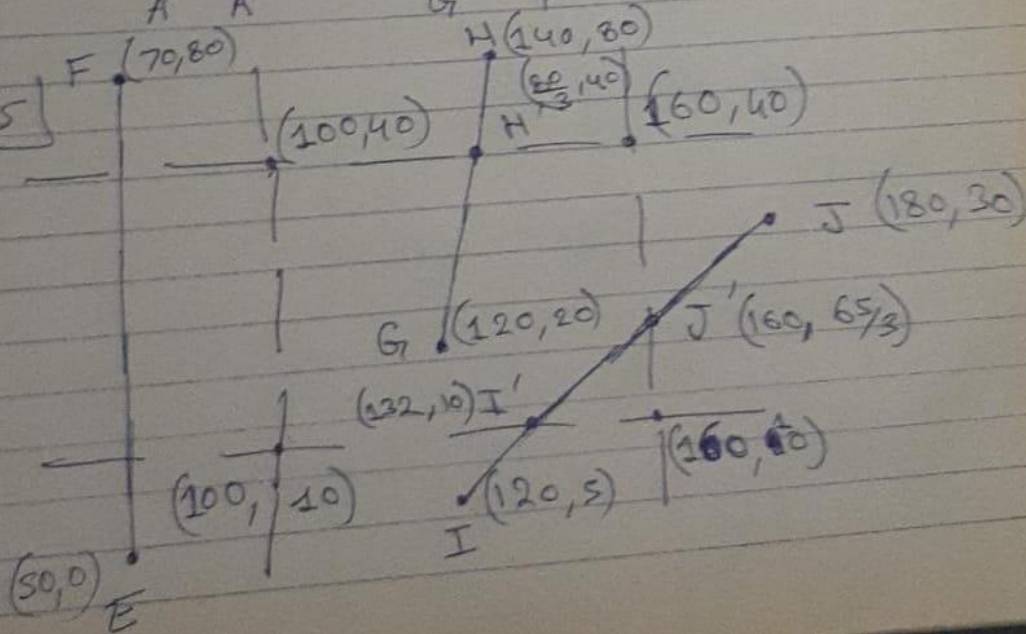 F (70,80)
H (140,80)
(80/3, 40)
5
(100,40)
H'
(160,40)
J (180,30)
G (120,20)
J' (160, 65/3)
(132,10) I'
(100, 10)
(120,5)
(160,10)
I
(50,0)
E